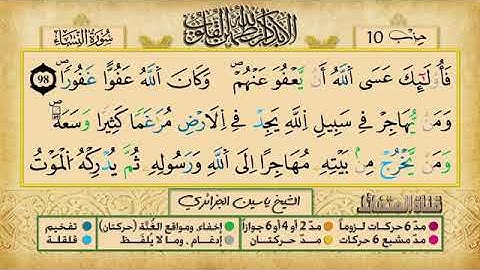 حِزْبُ 10
أَلَا بِذِكْرِ اللَّهِ تَطْمَئِنُّ الْقُلُوبُ
سُورَةُ النِّسَاءِ
فَأُوْلَٰٓئِكَ عَسَى اَللَّهُ أَنْ يَّعْفُوَ عَنْهُمْۖ وَكَانَ اَللَّهُ عَفُوّاً غَفُوراٗۖ 98
وَمَنْ يُّهَاجِرْ فِے سَبِيلِ اِللَّهِ يَجِدْ فِے اِلَارْضِ مُرَٰغَماٗ كَثِيراٗ وَسَعَةٗۖ
وَمَنْ يَّخْرُجْ مِنۢ بَيْتِهِۦ مُهَاجِراً إِلَى اَللَّهِ وَرَسُولِهِۦ ثُمَّ يُدْرِكْهُ اُلْمَوْتُ
الشيخ ياسين الجزائري
مدّ 6 حركات لزوماً مدّ 2 أو 4 أو 6 جوازاً إخفاء، ومواقع الغُنَّة (حركتان) تفخيم
مدّ مشبع 6 حركات مدّ حركتان إدغام، وما لا يُلفَظ قلقلة